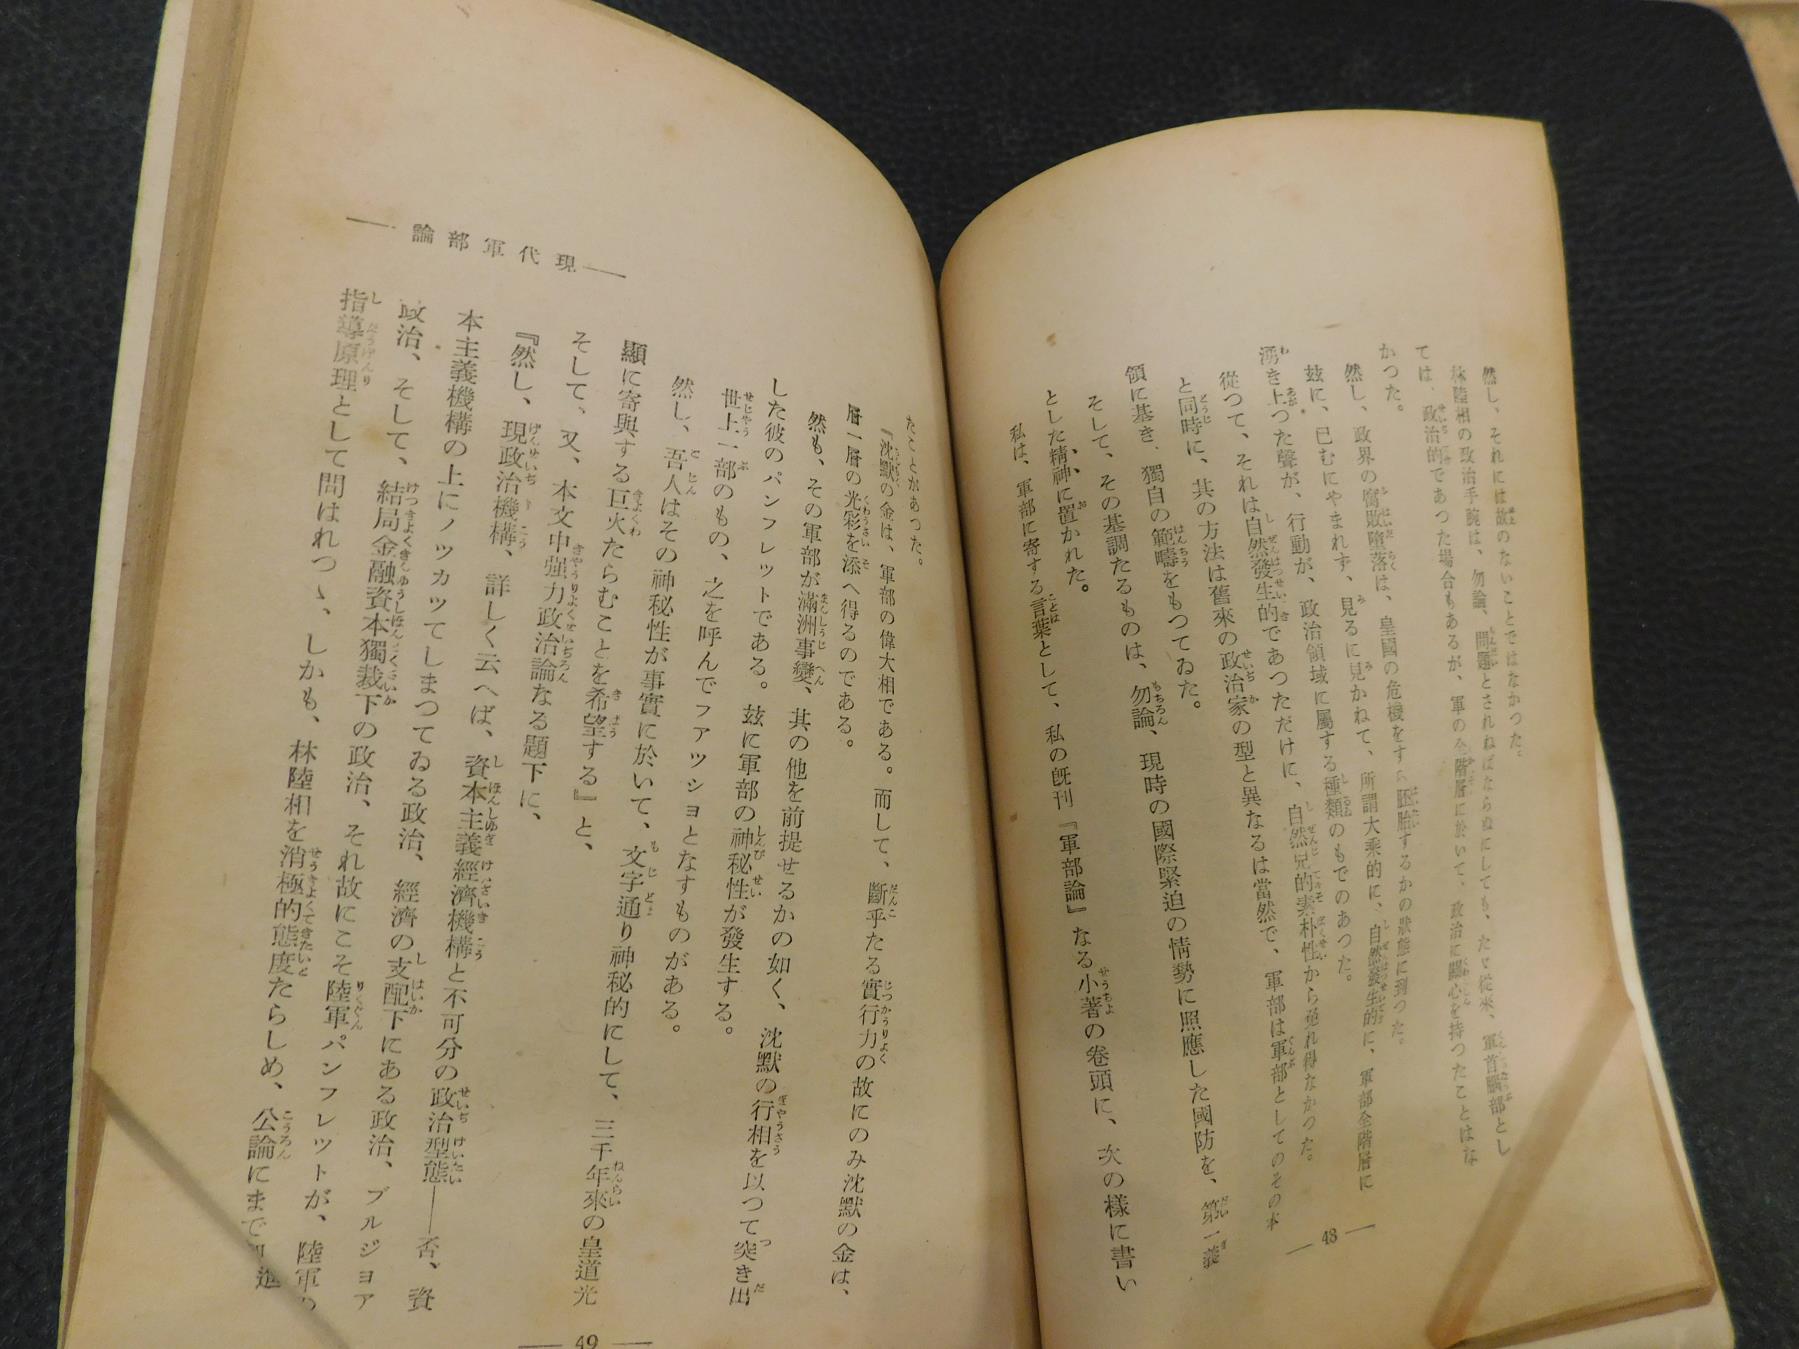 然し、それには故のないことではなかつた。
林陸相の政治手腕は、勿論、問題とされねばならぬにしても、たゞ從來、軍首腦部とし
ては、政治的であつた場合もあるが、軍の全階層に於いて、政治に關心を持つたことはな
かつた。
然し、政界の腐敗墮落は、皇國の危機をすら胚胎するかの狀態に到つた。
玆に、已むにやまれず、見るに見かねて、所謂大乘的に、自然發生的に、軍部全階層に
湧き上つた聲が、行動が、政治領域に屬する種類のもでのあつた。
從つて、それは自然發生的であつただけに、自然兒的素朴性から逸れ得なかつた。
と同時に、其の方法は舊來の政治家の型と異なるは當然で、軍部は軍部としてのその本
領に基き、獨自の範疇をもつてゐた。
そして、その基調たるものは、勿論、現時の國際緊迫の情勢に照應した國防を、第一義
とした精神に置かれた。
私は、軍部に寄する言葉として、私の既刊『軍部論』なる小著の卷頭に、次の樣に書い
— 48 —
たことがあつた。
『沈默の金は、軍部の偉大相である。而して、斷乎たる實行力の故にのみ沈默の金は、
層一層の光彩を添へ得るのである。
然も、その軍部が滿洲事變、其の他を前提せるかの如く、沈默の行相を以つて突き出
した彼のパンフレットである。玆に軍部の神秘性が發生する。
世上一部のもの、之を呼んでファツショとなすものがある。
然し、吾人はその神秘性が事實に於いて、文字通り神秘的にして、三千年來の皇道光
顯に寄與する巨火たらむことを希望する』と、
そして、又、本文中强力政治論なる題下に、
『然し、現政治機構、詳しく云へば、資本主義經濟機構と不可分の政治型態——否、資
本主義機構の上にノツカツてしまつてゐる政治、經濟の支配下にある政治、ブルジョア
政治、そして、結局金融資本獨裁下の政治、それ故にこそ陸軍パンフレットが、陸軍の
指導原理として問はれつゝ、しかも、林陸相を消極的態度たらしめ、公論にまで
— 現代軍部論 —
— 49 —